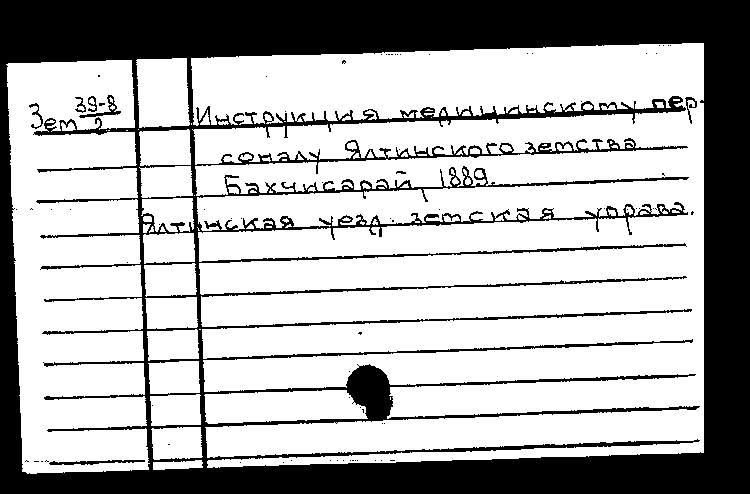 Зем 39-8/2
Инструкция медицинскому пер-
соналу Ялтинского земства
Бахчисарай, 1889.
Ялтинская уезд. земская управа.